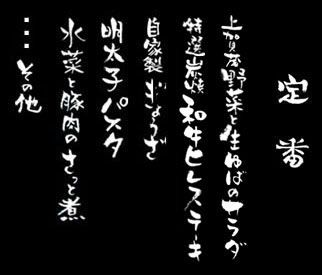 定番
上賀茂野菜と生ゆばのサラダ
特選炭焼和牛ヒレステーキ
自家製ぎょうざ
明太子パスタ
水菜と豚肉のさっと煮
…その他